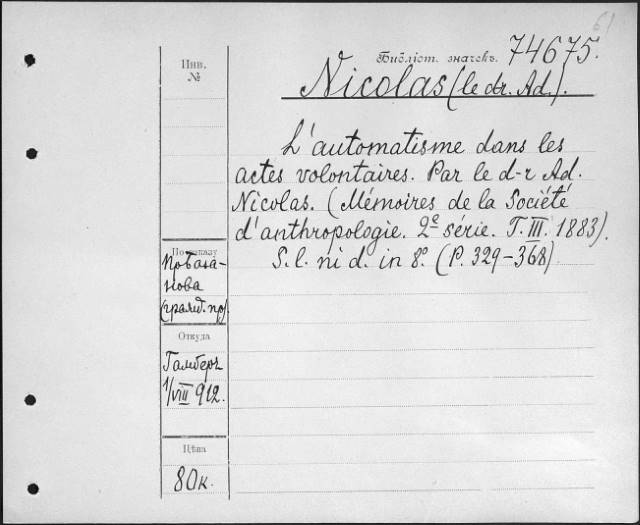 61
Библіот. значекъ. 74675.
Nicolas (le dr. Ad.).
Инв.
№
L'automatisme dans les
actes volontaires. Par le d-r Ad.
Nicolas. (Mémoires de la Société
d'anthropologie. 2e série. T. III. 1883).
S. l. ni d. in 8º. (P. 329-368)
По заказу
нова
Откуда
1/VIII 912.
Цѣна
80 к.